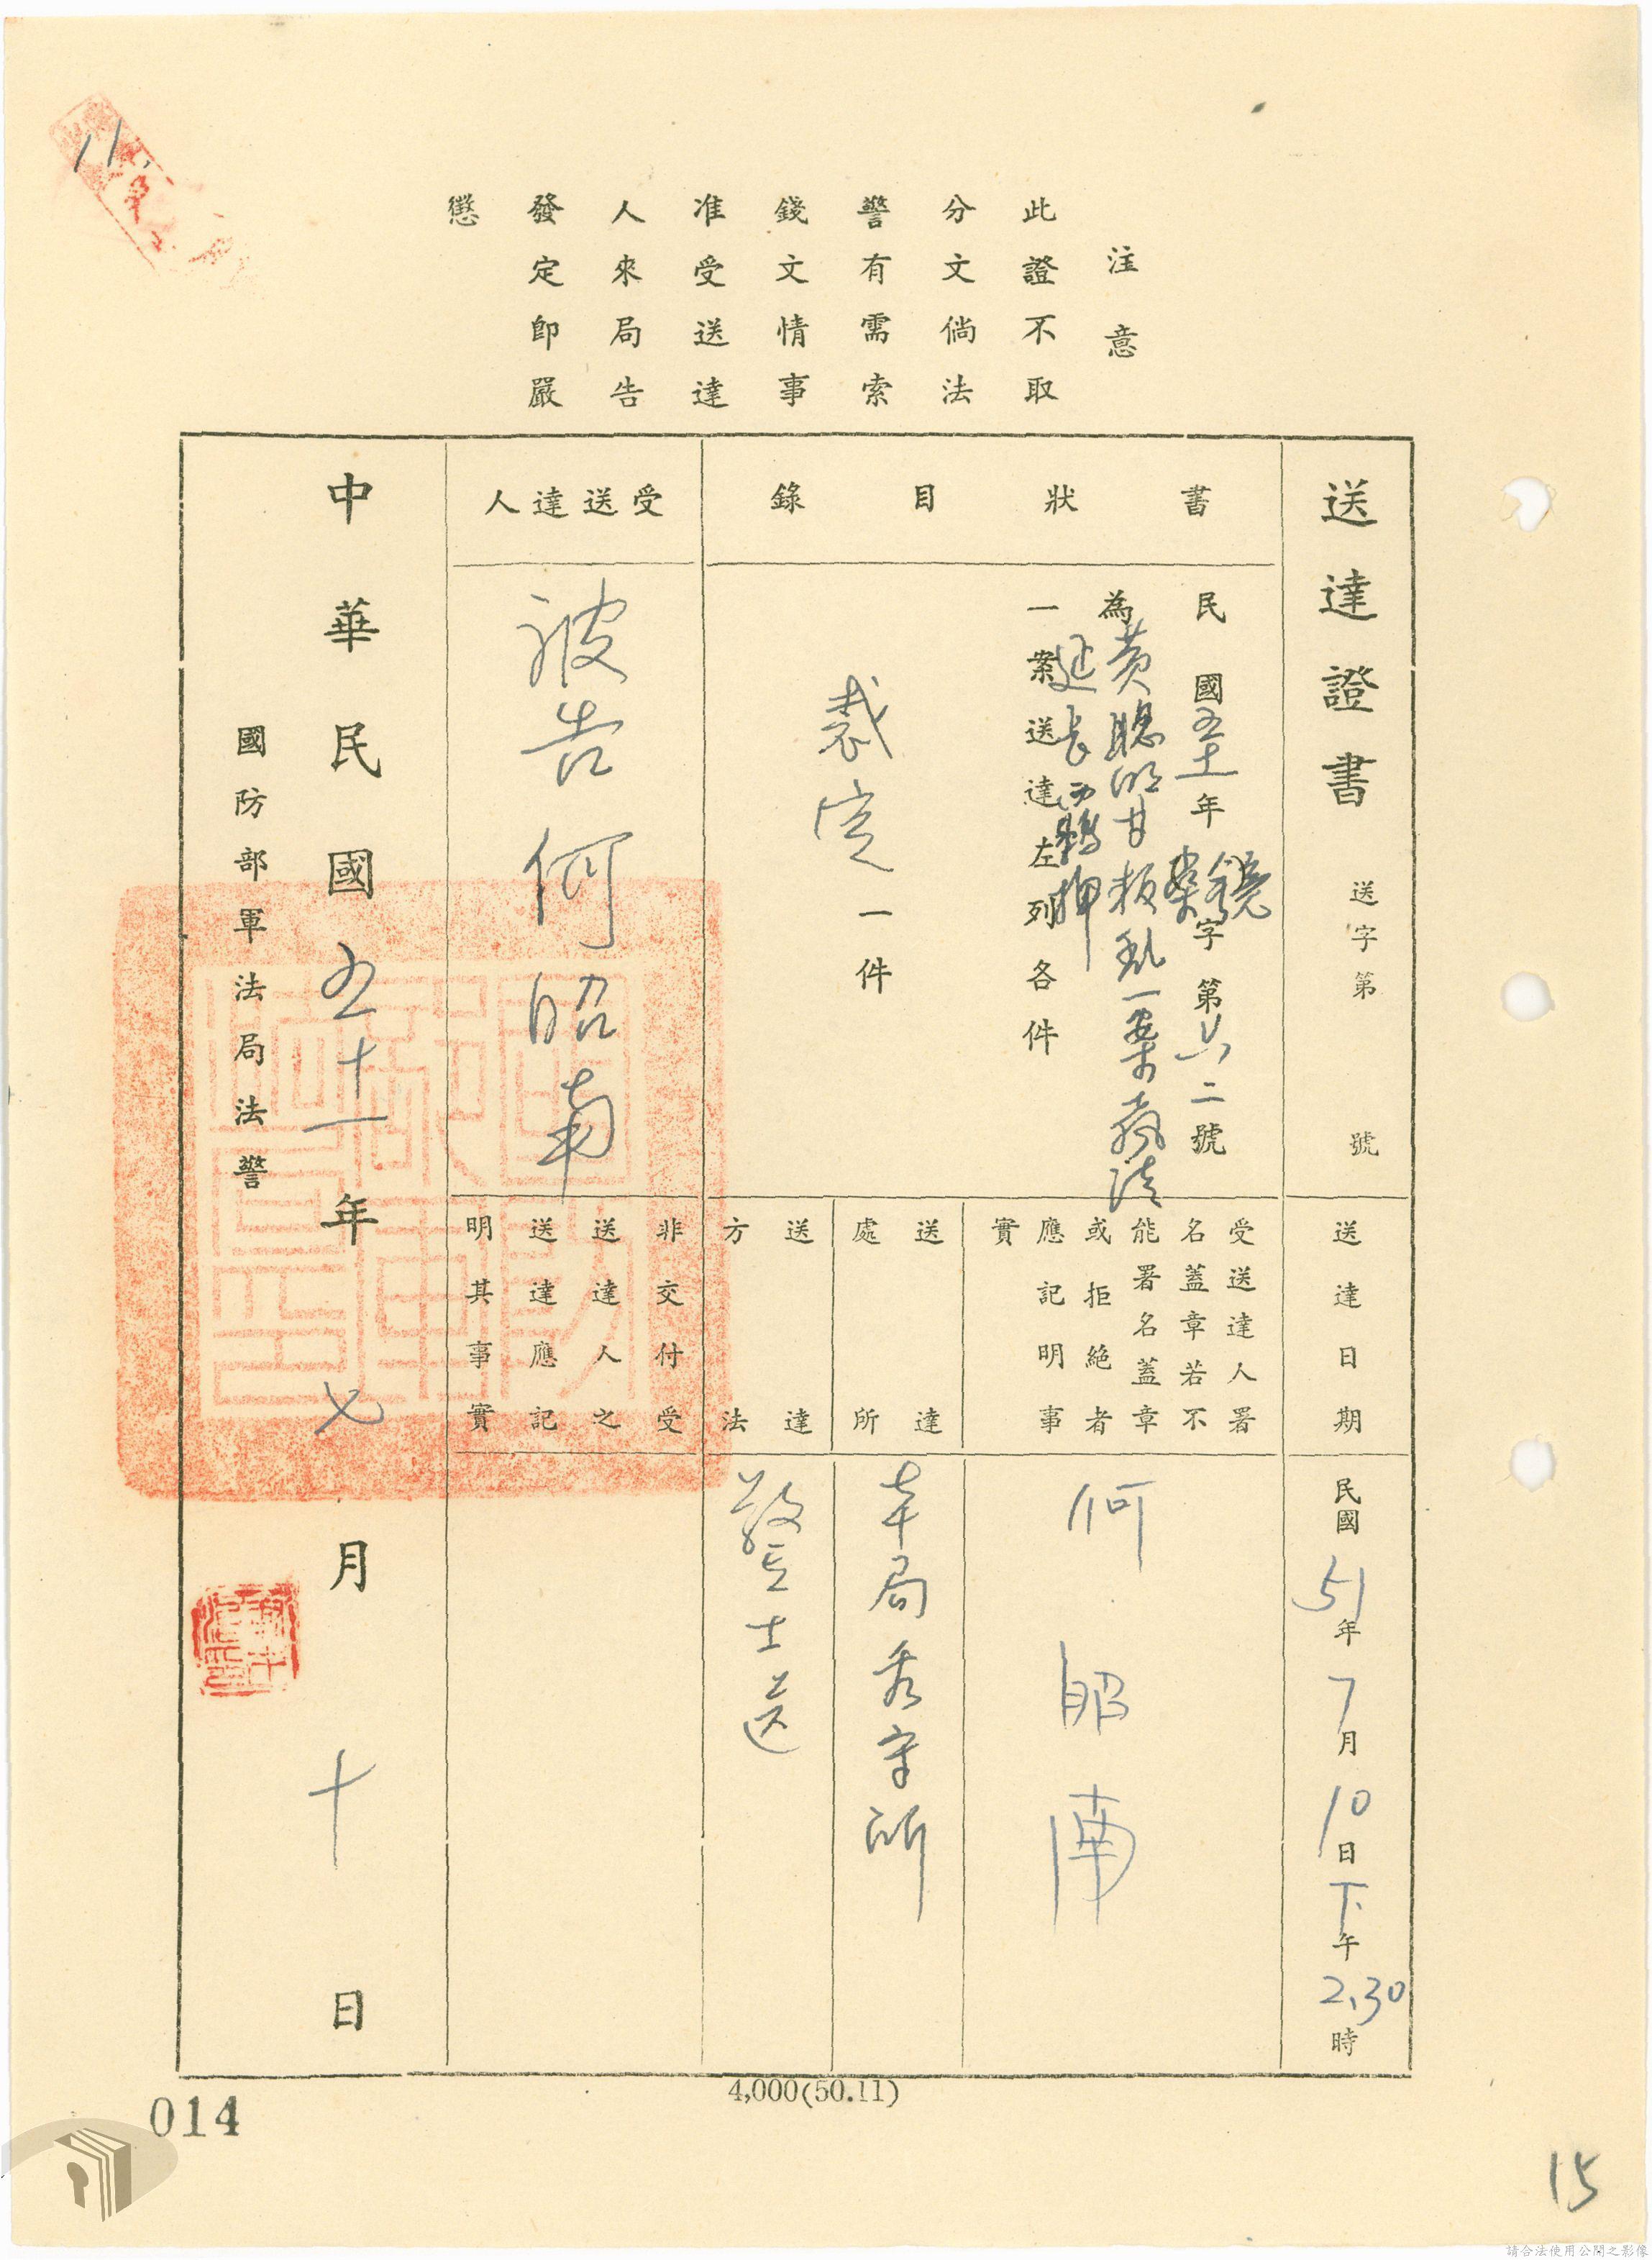 注意
此證不取
分文倘法
警有需索
錢文情事
准受送達
人來局告
發定即嚴
懲
送達證書 送字第 號
書狀目錄
民國五十一年 字第六二號
為黃聰明甘叛亂一案裁請
延長羈押
一案送達左列各件
裁定一件
受送達人
被告何昭南
送達日期
民國51年7月10日下午2、30時
受送達人署
名蓋章若不
能署名蓋章
或拒絕者
應記明事
實
何昭南
送達
處所
本局看守所
送達
方法
警士送
非交付受
送達人之
送達應記
明其事實
中華民國五十一年七月十日
國防部軍法局法警
4,000(50.11)
014
15
11
請合法使用公開之影像